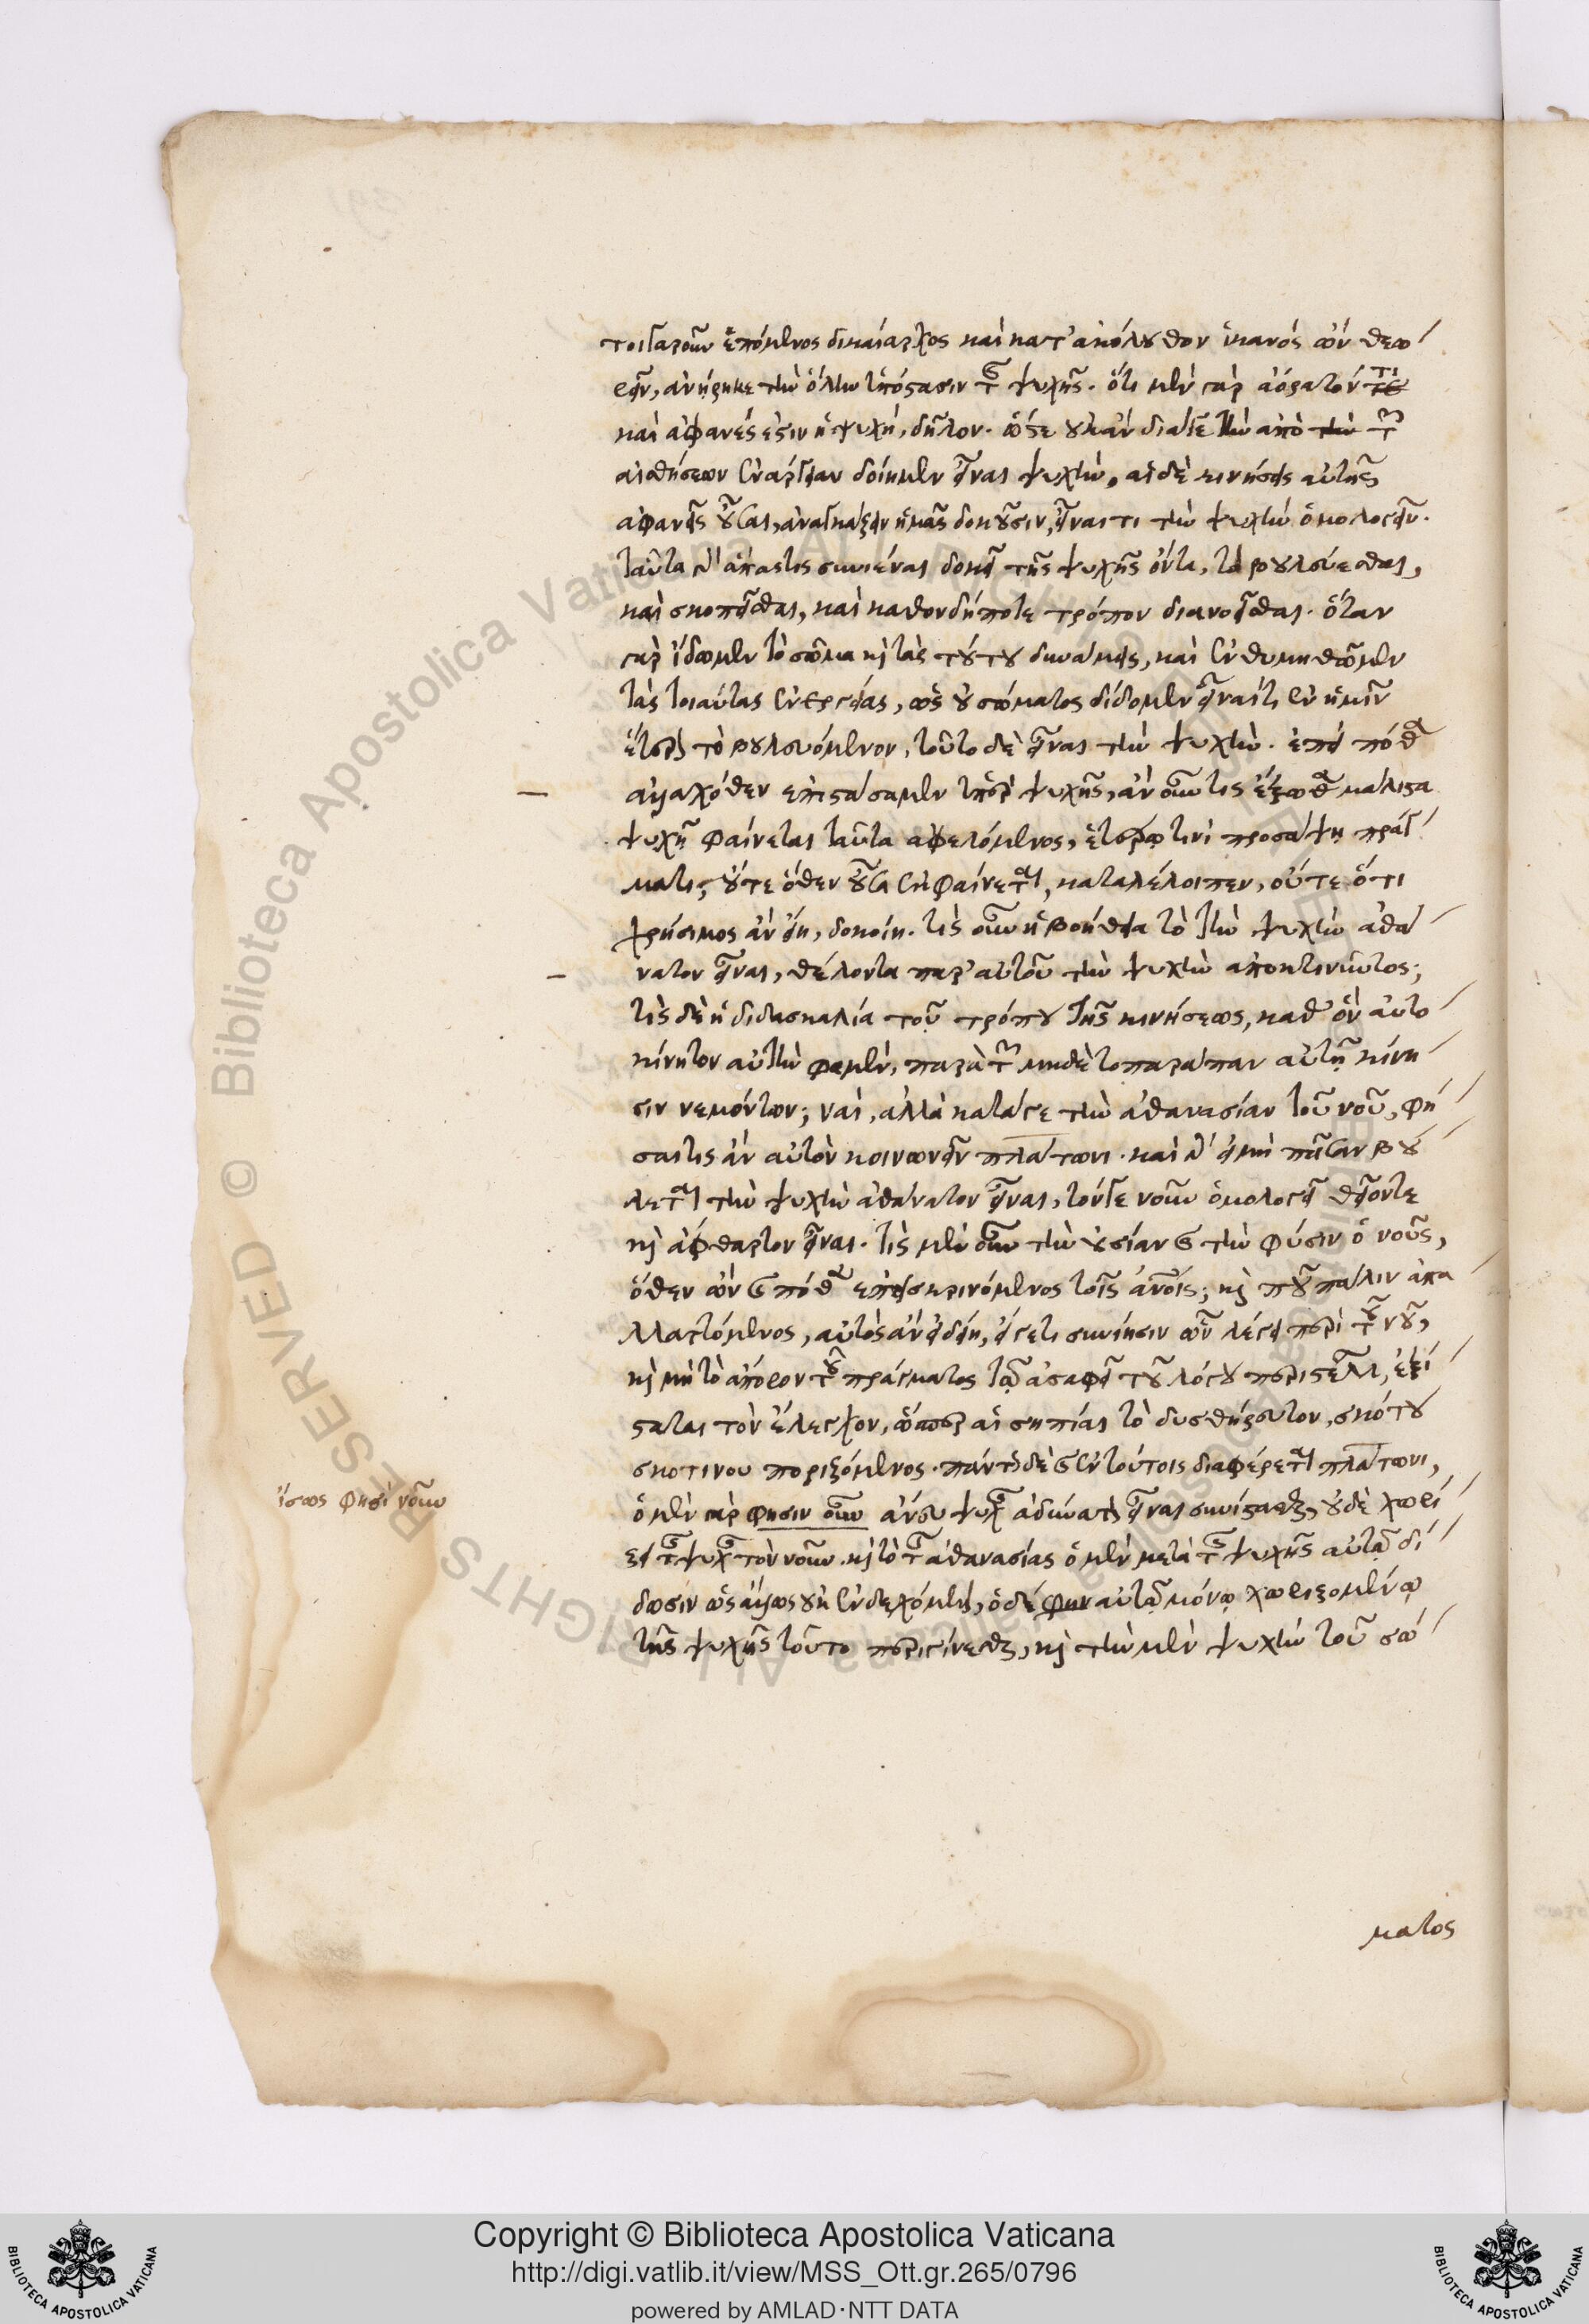 τοιγαροῦν ἑπόμενος δικαίαρχος καὶ κατ' ἀκόλουθον ἱκανός ὢν θεω
ρεῖν, ἀνῄρηκε τὴν ὅλην ὑπόστασιν τῆς ψυχῆς. ὅτι μὲν γὰρ ἀόρατόν τι
καὶ ἀφανές ἐστιν ἡ ψυχή, δῆλον. ὥστε οὐκ ἂν διά γε τὴν ἀπὸ τὴν τῶν
αἰσθήσεων ἐνάργειαν δοίημεν εἶναι ψυχήν, αἱ δὲ κινήσεις αὐτῆς
ἀφανεῖς οὖσαι, ἀναγκάζειν ἡμᾶς δοκοῦσιν, εἶναι τι τὴν ψυχὴν ὁμολογεῖν.
ταῦτα δ' ἅπας τις συνιέναι δοκεῖ τῆς ψυχῆς ὄντα, τὸ βουλεύεσθαι,
καὶ σκοπεῖσθαι, καὶ καθονδήποτε τρόπον διανοεῖσθαι. ὅταν
γὰρ ἴδωμεν τὸ σῶμα καὶ τὰς τούτου δυνάμεις, καὶ ἐνθυμηθῶμεν
τὰς τοιαύτας ἐνεργείας, ὡς οὐ σώματος δίδομεν εἶναί τι ἐν ἡμῖν
ἕτερον τὸ βουλευόμενον, τοῦτο δὲ εἶναι τὴν ψυχήν. ἐπεὶ πόθεν
ἀλλαχόθεν ἐπιστάσαμεν ὑπὲρ ψυχῆς, ἂν οὖν τις ἐξ ὧν μάλιστα
ψυχὴ φαίνεται ταῦτα ἀφελόμενος, ἑτέρῳ τινὶ προσάψῃ πράγ
ματι, οὔτε ὅθεν οὖσα ἐκφαίνεται, καταλέλοιπεν, οὔτε ὅτι
χρήσιμος ἂν εἴη, δοκοίη. τίς οὖν ἡ βοήθεια τὸ τὴν ψυχὴν ἀθά
νατον εἶναι, θέλοντα παρ' αὐτοῦ τὴν ψυχὴν ἀποκτιννύντος;
τίς δὲ ἡ διδασκαλία τοῦ τρόπου τῆς κινήσεως, καθ' ὃν αὐτο
κίνητον αὐτὴν φαμὲν, παρὰ τῶν μηδὲ τοπαράπαν αὐτῇ κίνη
σιν νεμόντων; ναὶ, ἀλλὰ κατά γε τὴν ἀθανασίαν τοῦ νοῦ, φή
σαι τις ἂν αὐτὸν κοινωνεῖν πλάτωνι. καὶ δ' εἰ μὴ πᾶσαν βού
λεται τὴν ψυχὴν ἀθάνατον εἶναι, τόν γε νοῦν ὁμολογεῖ θεῖόν τε
καὶ ἄφθαρτον εἶναι. τίς μὲν οὖν τὴν οὐσίαν καὶ τὴν φύσιν ὁ νοῦς,
ὅθεν ὢν καὶ πόθεν ἐπεισκρινόμενος τοῖς ἀνθρώποις; καὶ ποῦ πάλιν ἀπα
λλαττόμενος, αὐτὸς ἂν εἰδείη, εἴ γέ τι συνίησιν ὧν λέγει περὶ τοῦ νοῦ,
καὶ μὴ τὸ ἄπορον τοῦ πράγματος τῷ ἀσαφεῖ τοῦ λόγου περιστέλλων, ἐξί
σταται τὸν ἔλεγχον, ὥσπερ αἱ σηπίαι τὸ δυσθήρευτον, σκότου
σκοτινου ποριζόμενος. πάντη δὲ καὶ ἐν τούτοις διαφέρεται πλάτωνι,
ὁ μὲν γὰρ φησιν οὖν ἄνευ ψυχῆς ἀδύνατον εἶναι συνίστασθαι, οὐδὲ χωρί
ζει τῆς ψυχῆς τὸν νοῦν. καὶ τὸ τῆς ἀθανασίας ὁ μὲν μετὰ τῆς ψυχῆς αὐτῷ δί
δωσιν ὡς ἄλλως οὐκ ἐνδεχόμενον, ὁ δέ φησιν αὐτῷ μόνῳ χωριζομένῳ
τῆς ψυχῆς τοῦτο περιγίνεσθαι, καὶ τὴν μὲν ψυχὴν τοῦ σώ
ἴσως φησὶ νοῦν
ματος
Copyright © Biblioteca Apostolica Vaticana
http://digi.vatlib.it/view/MSS_Ott.gr.265/0796
powered by AMLAD·NTT DATA